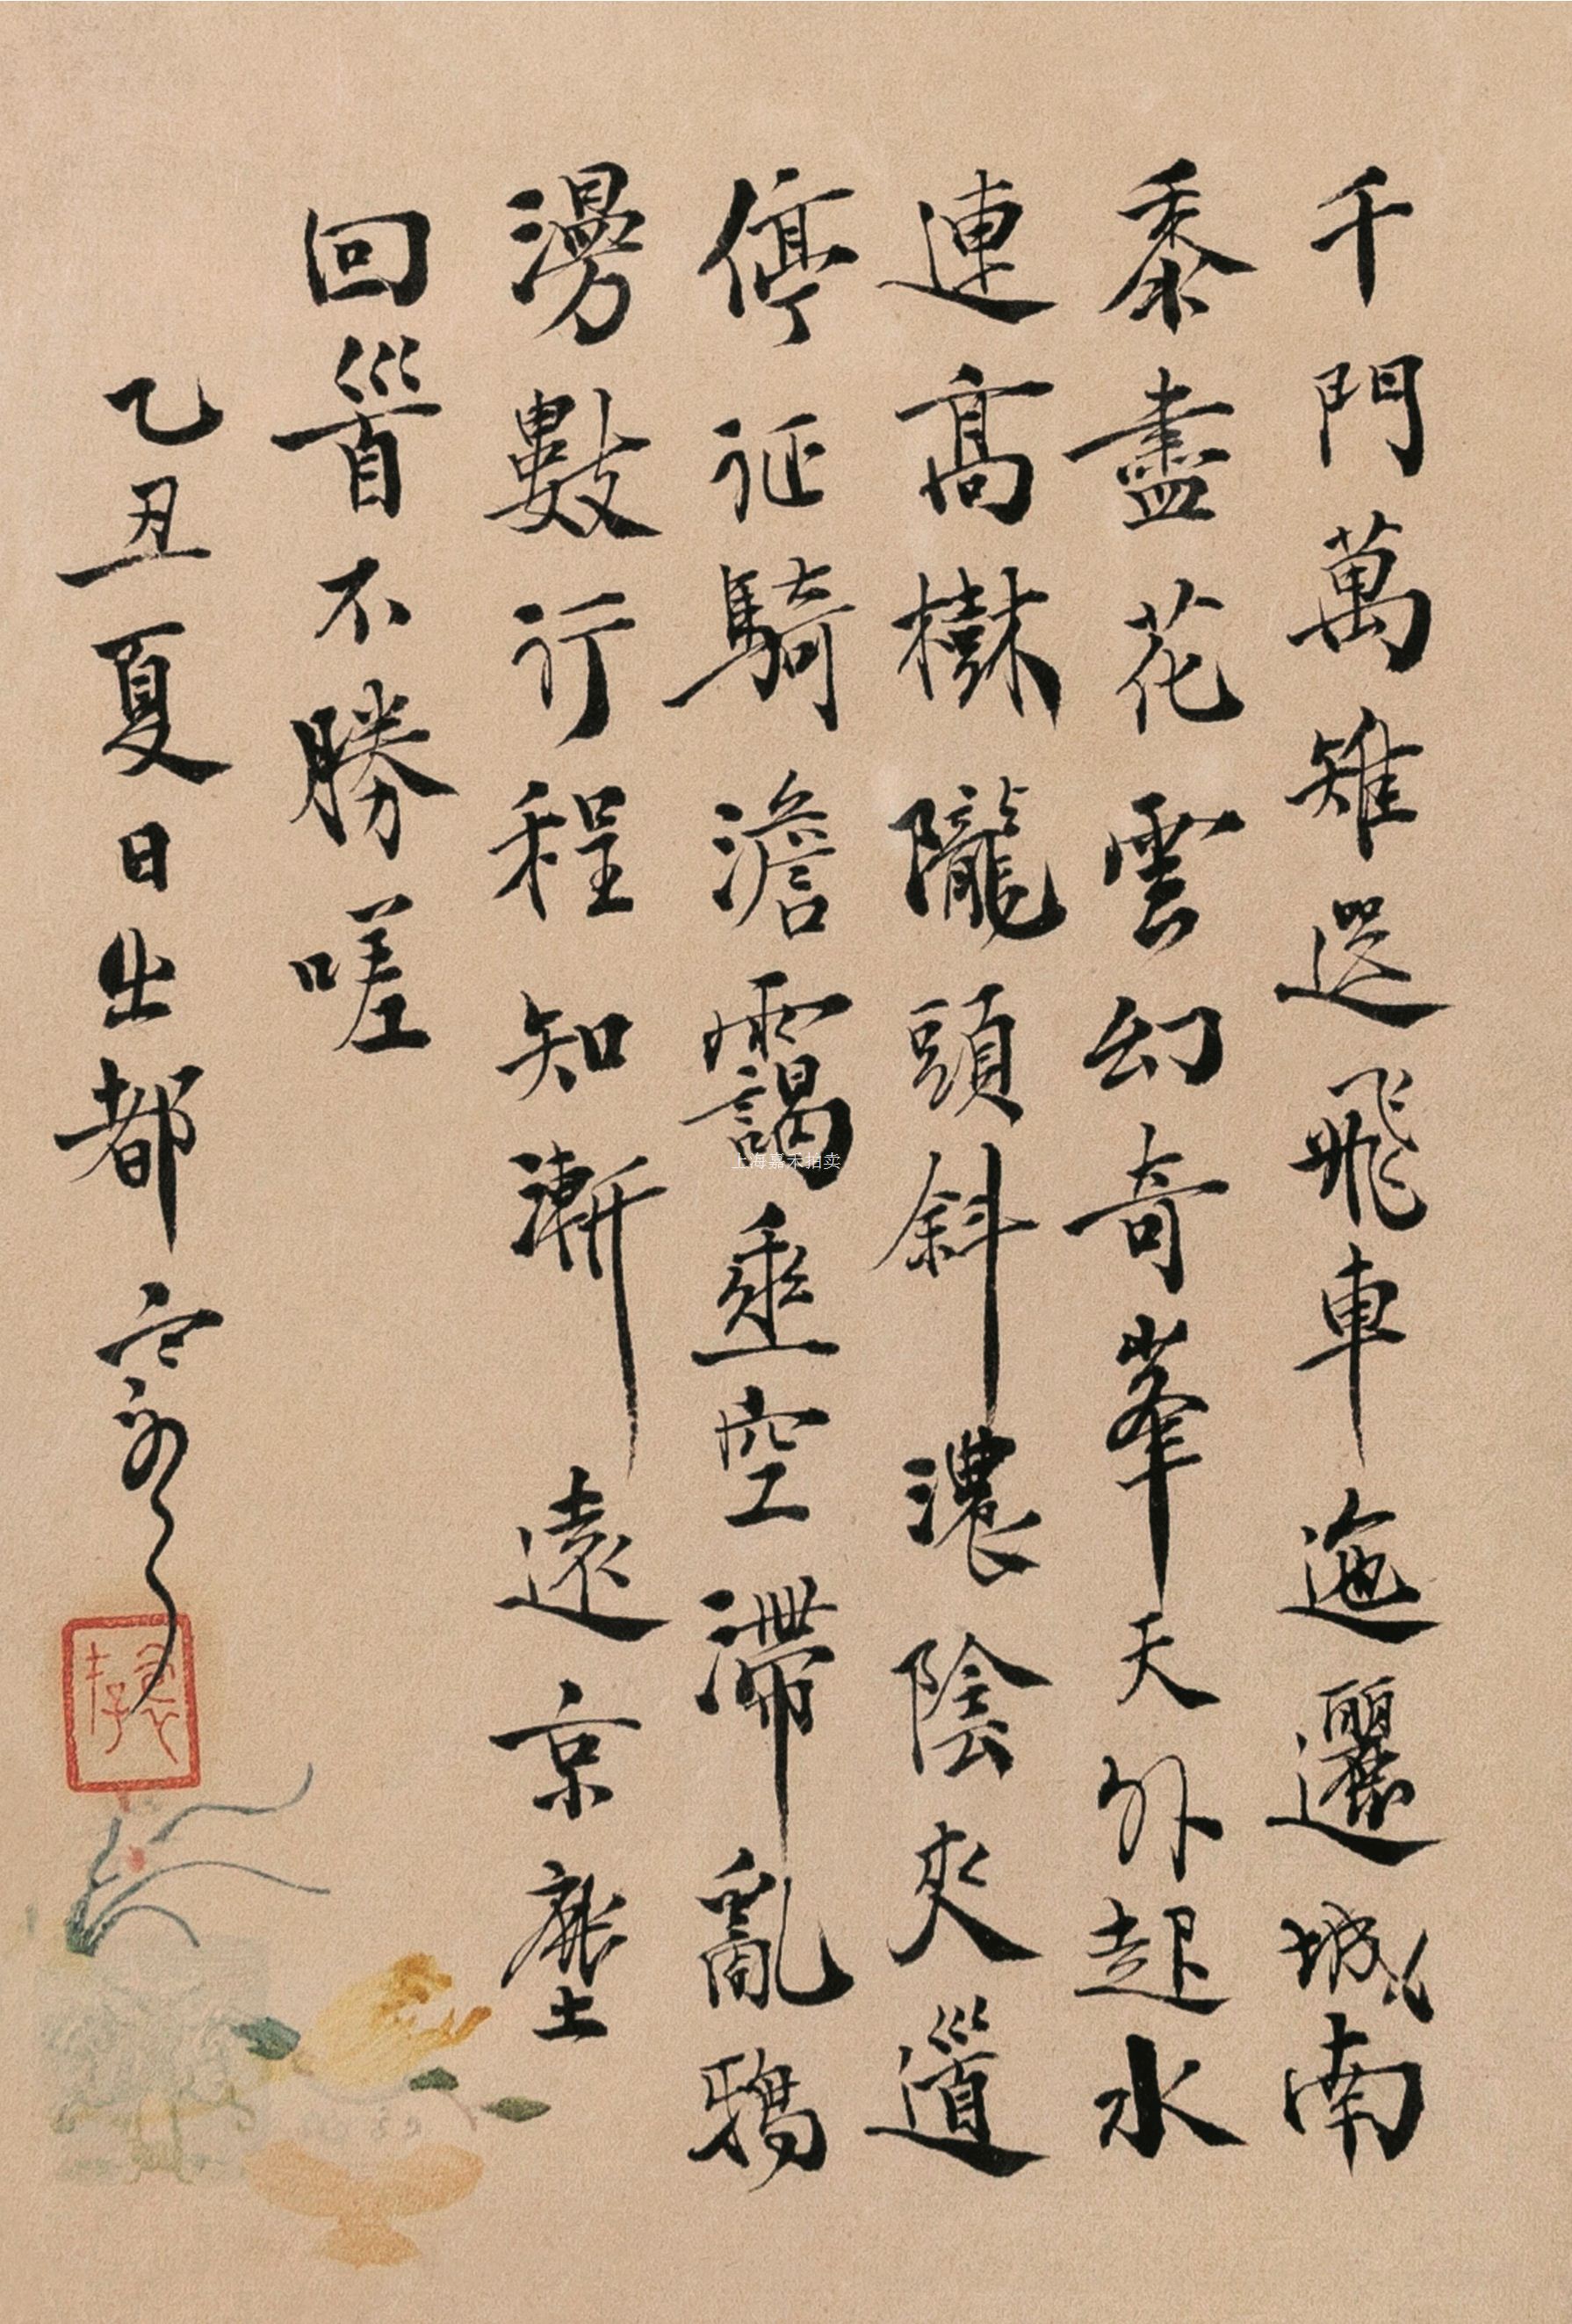 千門萬雉飛車迤邐城南
黍盡花雲幻奇峯天外起水
連高樹隴頭斜濃陰夾道
停征騎澹靄垂空滯亂鴉
漫數行程知漸遠京塵
回首不勝嗟
乙丑夏日出都
上海嘉禾拍卖